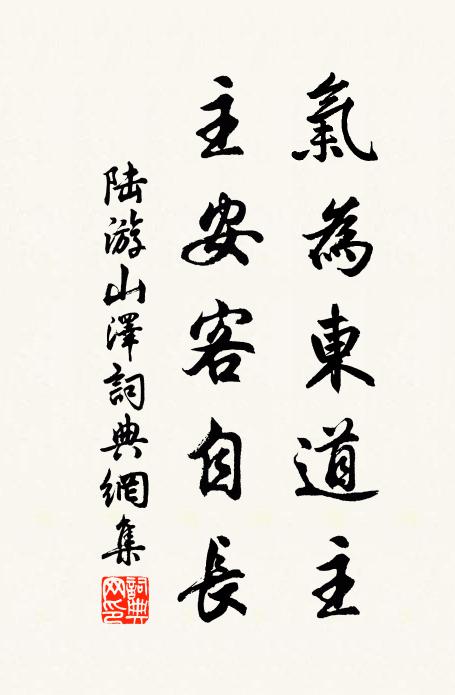 氣為東道主
主安客自長
陸游山澤詞典網集
詞典網印